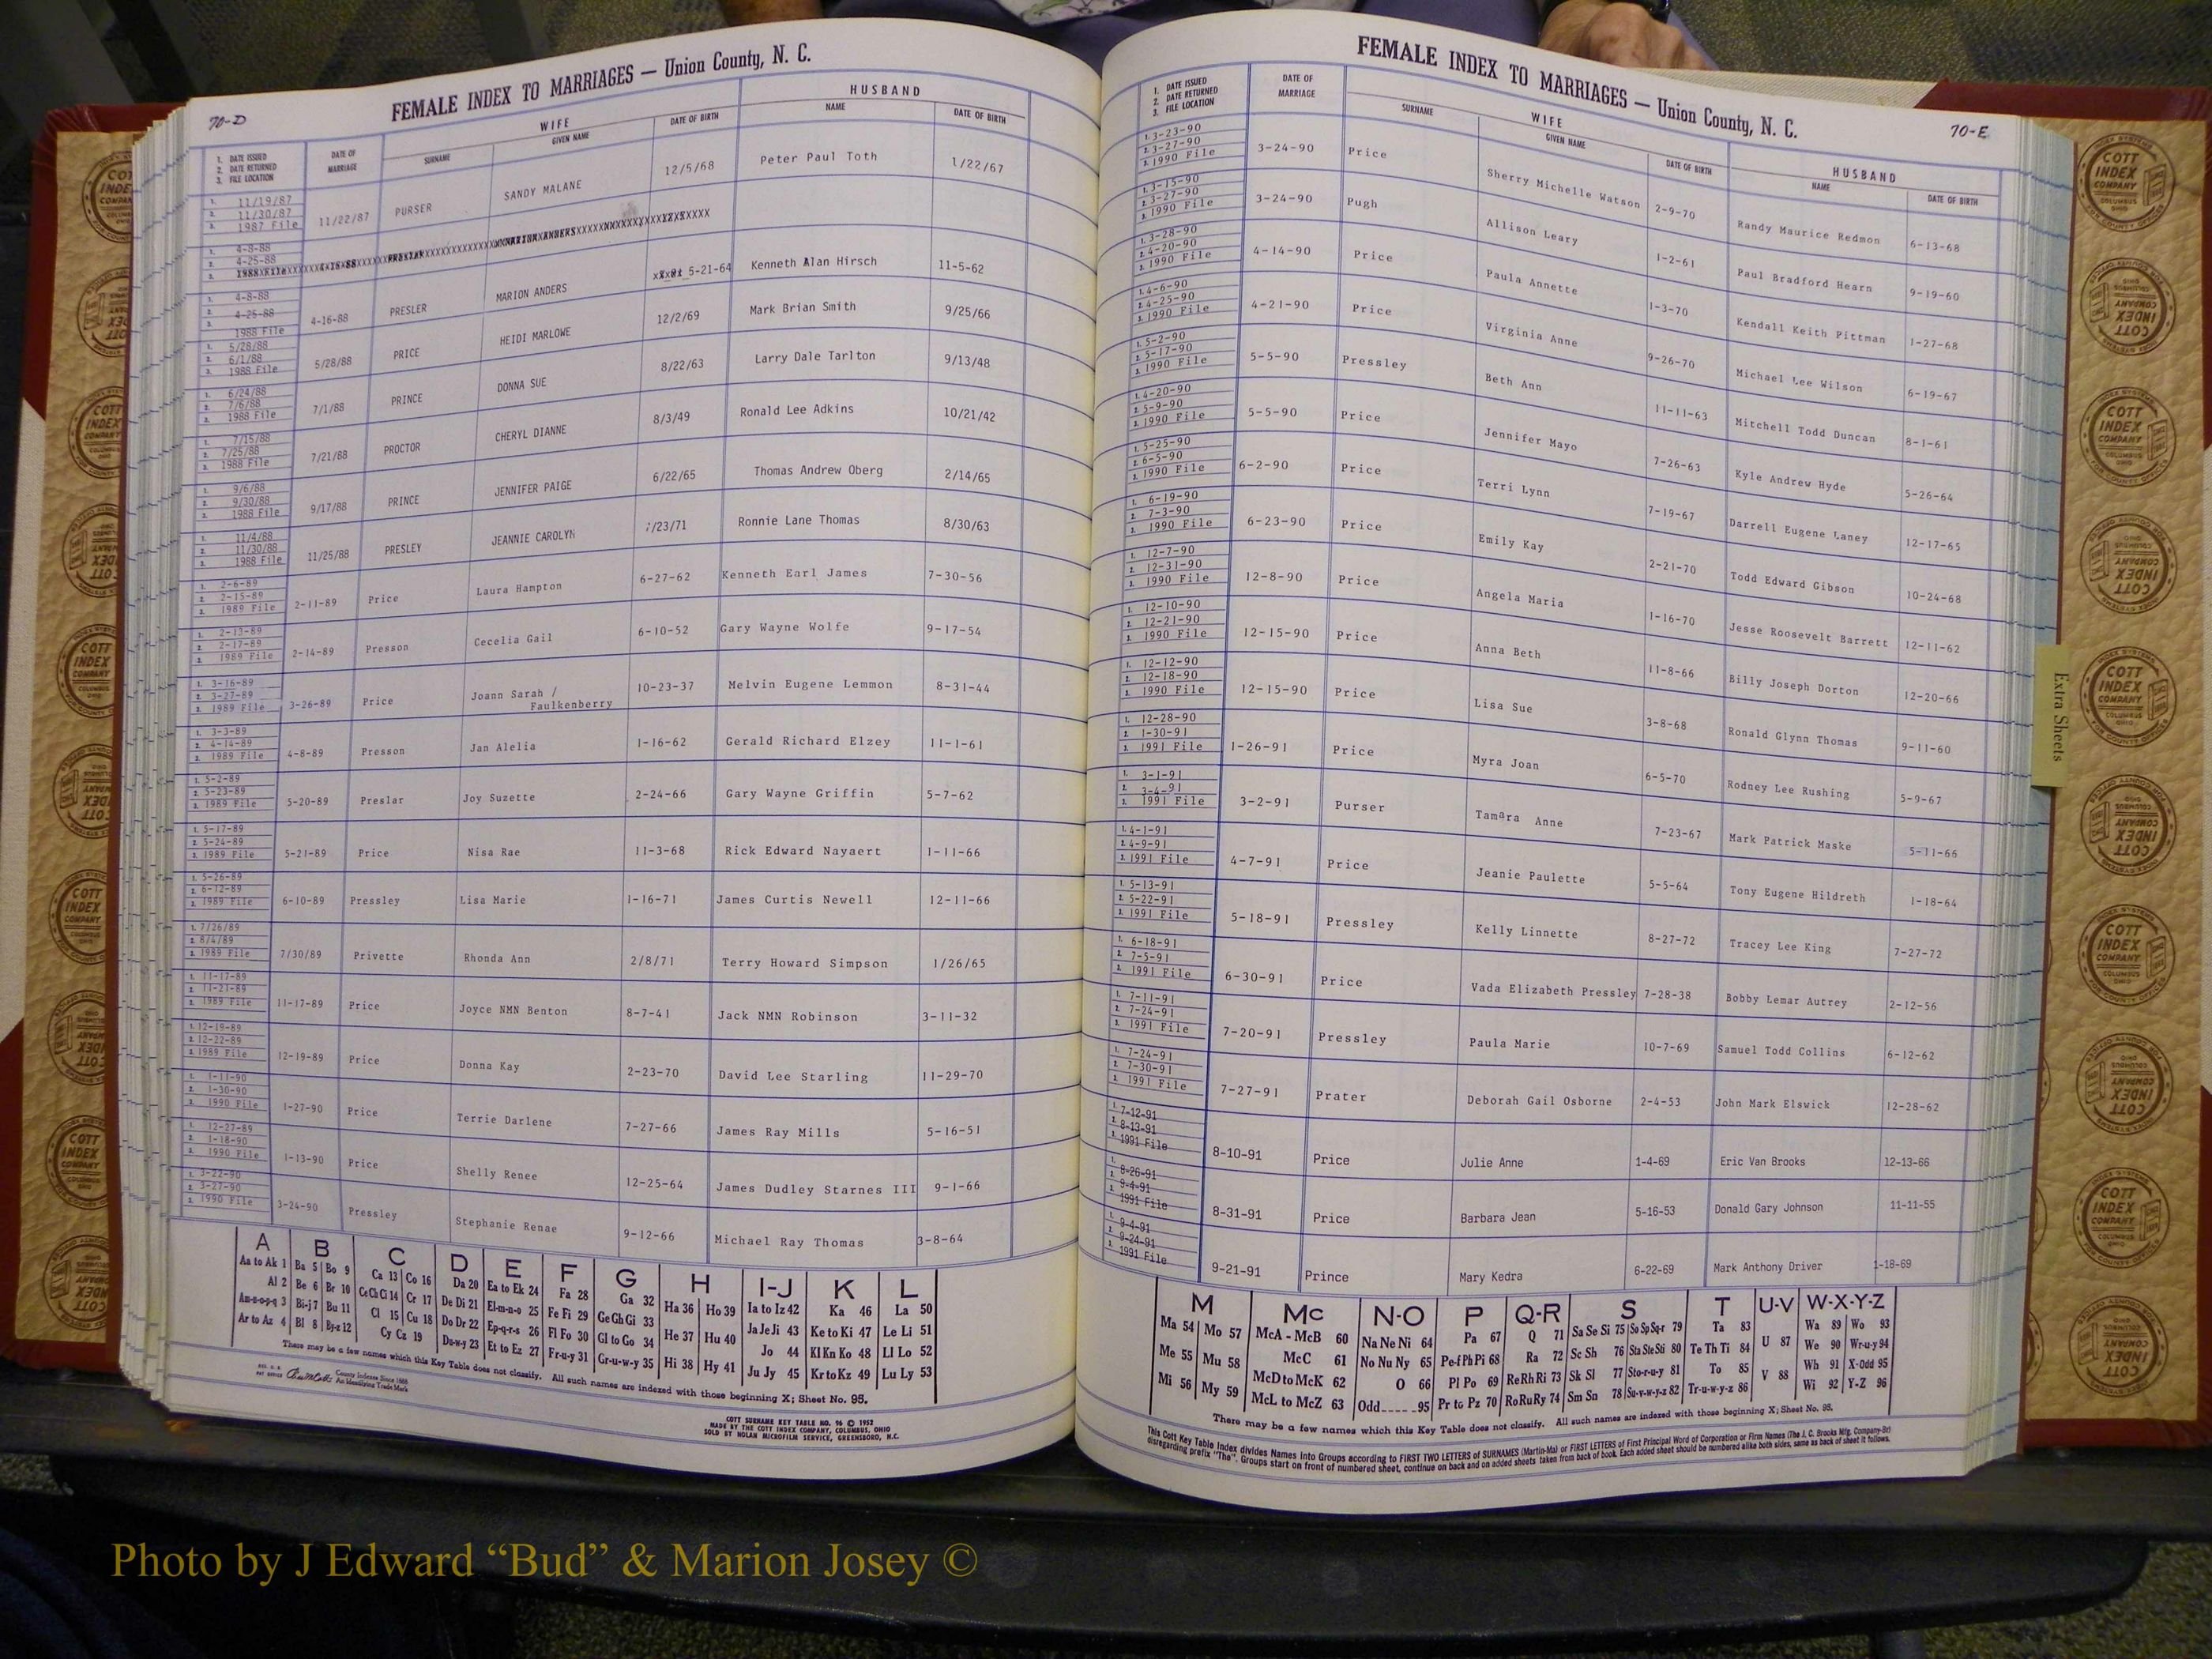 70-D
FEMALE INDEX TO MARRIAGES — Union County, N. C.
WIFE HUSBAND
1. DATE ISSUED 2. DATE RETURNED 3. FILE LOCATION DATE OF MARRIAGE SURNAME GIVEN NAME DATE OF BIRTH NAME DATE OF BIRTH
1. 11/19/87 2. 11/30/87 3. 1987 File 11/22/87 PURSER SANDY MALANE 12/5/68 Peter Paul Toth 1/22/67
4-8-88 4-25-88
4-8-88 4-25-88 1988 File 4-16-88 PRESLER MARION ANDERS 5-21-64 Kenneth Alan Hirsch 11-5-62
5/28/88 6/1/88 1988 File 5/28/88 PRICE HEIDI MARLOWE 12/2/69 Mark Brian Smith 9/25/66
6/24/88 7/6/88 1988 File 7/1/88 PRINCE DONNA SUE 8/22/63 Larry Dale Tarlton 9/13/48
7/15/88 7/25/88 1988 File 7/21/88 PROCTOR CHERYL DIANNE 8/3/49 Ronald Lee Adkins 10/21/42
9/6/88 9/30/88 1988 File 9/17/88 PRINCE JENNIFER PAIGE 6/22/65 Thomas Andrew Oberg 2/14/65
11/4/88 11/30/88 1988 File 11/25/88 PRESLEY JEANNIE CAROLYN /23/71 Ronnie Lane Thomas 8/30/63
2-6-89 2-15-89 1989 File 2-11-89 Price Laura Hampton 6-27-62 Kenneth Earl James 7-30-56
2-13-89 2-17-89 1989 File 2-14-89 Presson Cecelia Gail 6-10-52 Gary Wayne Wolfe 9-17-54
3-16-89 3-27-89 1989 File 3-26-89 Price Joann Sarah / Faulkenberry 10-23-37 Melvin Eugene Lemmon 8-31-44
3-3-89 4-14-89 1989 File 4-8-89 Presson Jan Alelia 1-16-62 Gerald Richard Elzey 11-1-61
5-2-89 5-23-89 1989 File 5-20-89 Preslar Joy Suzette 2-24-66 Gary Wayne Griffin 5-7-62
5-17-89 5-24-89 1989 File 5-21-89 Price Nisa Rae 11-3-68 Rick Edward Nayaert 1-11-66
5-26-89 6-12-89 1989 File 6-10-89 Pressley Lisa Marie 1-16-71 James Curtis Newell 12-11-66
7/26/89 8/4/89 1989 File 7/30/89 Privette Rhonda Ann 2/8/71 Terry Howard Simpson 1/26/65
11-17-89 11-21-89 1989 File 11-17-89 Price Joyce NMN Benton 8-7-41 Jack NMN Robinson 3-11-32
12-19-89 12-22-89 1989 File 12-19-89 Price Donna Kay 2-23-70 David Lee Starling 11-29-70
1-11-90 1-30-90 1990 File 1-27-90 Price Terrie Darlene 7-27-66 James Ray Mills 5-16-51
12-27-89 1-18-90 1990 File 1-13-90 Price Shelly Renee 12-25-64 James Dudley Starnes III 9-1-66
3-22-90 3-27-90 1990 File 3-24-90 Pressley Stephanie Renae 9-12-66 Michael Ray Thomas 3-8-64
A B C D E F G H I-J K L
Aa to Ak 1 Ba 5 Bo 9 Ca 13 Co 16 Da 20 Ea to Ek 24 Fa 28 Ga 32 Ha 36 Ho 39 Ia to Iz 42 Ka 46 La 50
Al 2 Be 6 Br 10 Ce Ch Ci 14 Cr 17 De Di 21 El-m-n-o 25 Fe Fi 29 Ge Gh Gi 33 He 37 Hu 40 Ja Je Ji 43 Ke to Ki 47 Le Li 51
Am-n-o-p-q 3 Bi-j 7 Bu 11 Cl 15 Cu 18 Do Dr 22 Ep-q-r-s 26 Fl Fo 30 Gl to Go 34 Hi 38 Hy 41 Jo 44 Kl Kn Ko 48 Ll Lo 52
Ar to Az 4 Bl 8 By-z 12 Cy Cz 19 Du-w-y 23 Et to Ez 27 Fr-u-y 31 Gr-u-w-y 35 Ju Jy 45 Kr to Kz 49 Lu Ly 53
There may be a few names which this Key Table does not classify. All such names are indexed with those beginning X; Sheet No. 95.
County Indexes Since 1888
An Identifying Trade Mark
COTT SURNAME KEY TABLE NO. 96 © 1952
MADE BY THE COTT INDEX COMPANY, COLUMBUS, OHIO
SOLD BY NOLAN MICROFILM SERVICE, GREENSBORO, N.C.
FEMALE INDEX TO MARRIAGES — Union County, N. C.
70-E
WIFE HUSBAND
1. DATE ISSUED 2. DATE RETURNED 3. FILE LOCATION DATE OF MARRIAGE SURNAME GIVEN NAME DATE OF BIRTH NAME DATE OF BIRTH
3-23-90 3-27-90 1990 File 3-24-90 Price Sherry Michelle Watson 2-9-70 Randy Maurice Redmon 6-13-68
3-15-90 3-27-90 1990 File 3-24-90 Pugh Allison Leary 1-2-61 Paul Bradford Hearn 9-19-60
3-28-90 4-20-90 1990 File 4-14-90 Price Paula Annette 1-3-70 Kendall Keith Pittman 1-27-68
4-6-90 4-25-90 1990 File 4-21-90 Price Virginia Anne 9-26-70 Michael Lee Wilson 6-19-67
5-2-90 5-17-90 1990 File 5-5-90 Pressley Beth Ann 11-11-63 Mitchell Todd Duncan 8-1-61
4-20-90 5-9-90 1990 File 5-5-90 Price Jennifer Mayo 7-26-63 Kyle Andrew Hyde 5-26-64
5-25-90 6-5-90 1990 File 6-2-90 Price Terri Lynn 7-19-67 Darrell Eugene Laney 12-17-65
6-19-90 7-3-90 1990 File 6-23-90 Price Emily Kay 2-21-70 Todd Edward Gibson 10-24-68
12-7-90 12-31-90 1990 File 12-8-90 Price Angela Maria 1-16-70 Jesse Roosevelt Barrett 12-11-62
12-10-90 12-21-90 1990 File 12-15-90 Price Anna Beth 11-8-66 Billy Joseph Dorton 12-20-66
12-12-90 12-18-90 1990 File 12-15-90 Price Lisa Sue 3-8-68 Ronald Glynn Thomas 9-11-60
12-28-90 1-30-91 1991 File 1-26-91 Price Myra Joan 6-5-70 Rodney Lee Rushing 5-9-67
3-1-91 3-4-91 1991 File 3-2-91 Purser Tamara Anne 7-23-67 Mark Patrick Maske 5-11-66
4-1-91 4-9-91 1991 File 4-7-91 Price Jeanie Paulette 5-5-64 Tony Eugene Hildreth 1-18-64
5-13-91 5-22-91 1991 File 5-18-91 Pressley Kelly Linnette 8-27-72 Tracey Lee King 7-27-72
6-18-91 7-5-91 1991 File 6-30-91 Price Vada Elizabeth Pressley 7-28-38 Bobby Lemar Autrey 2-12-56
7-11-91 7-24-91 1991 File 7-20-91 Pressley Paula Marie 10-7-69 Samuel Todd Collins 6-12-62
7-24-91 7-30-91 1991 File 7-27-91 Prater Deborah Gail Osborne 2-4-53 John Mark Elswick 12-28-62
7-12-91 8-13-91 1991 File 8-10-91 Price Julie Anne 1-4-69 Eric Van Brooks 12-13-66
8-26-91 9-4-91 1991 File 8-31-91 Price Barbara Jean 5-16-53 Donald Gary Johnson 11-11-55
9-4-91 9-24-91 1991 File 9-21-91 Prince Mary Kedra 6-22-69 Mark Anthony Driver 1-18-69
M Mc N-O P Q-R S T U-V W-X-Y-Z
Ma 54 Mo 57 McA - McB 60 Na Ne Ni 64 Pa 67 Q 71 Sa Se Si 75 So Sp Sq-r 79 Ta 83 U 87 Wa 89 Wo 93
Me 55 Mu 58 McC 61 No Nu Ny 65 Pe-f Ph Pi 68 Ra 72 Sc Sh 76 Sta Ste Sti 80 Te Th Ti 84 V 88 We 90 Wr-u-y 94
Mi 56 My 59 McD to McK 62 O 66 Pl Po 69 Re Rh Ri 73 Sk Sl 77 Sto-r-u-y 81 To 85 Wh 91 X-Odd 95
McL to McZ 63 Odd 95 Pr to Pz 70 Ro Ru Ry 74 Sm Sn 78 Su-v-w-y-z 82 Tr-u-w-y-z 86 Wi 92 Y-Z 96
There may be a few names which this Key Table does not classify. All such names are indexed with those beginning X; Sheet No. 95.
This Cott Key Table Index divides Names into Groups according to FIRST TWO LETTERS of SURNAMES (Martin-Ma) or FIRST LETTERS of First Principal Word of Corporation or Firm Names (The J. C. Brooks Mfg. Company-Br)
disregarding prefix "The". Groups start on front of numbered sheet, continue on back and on added sheets taken from back of book. Each added sheet should be numbered alike both sides, same as back of sheet it follows.
Extra Sheets
COTT INDEX COMPANY
COLUMBUS OHIO
Photo by J Edward “Bud” & Marion Josey ©